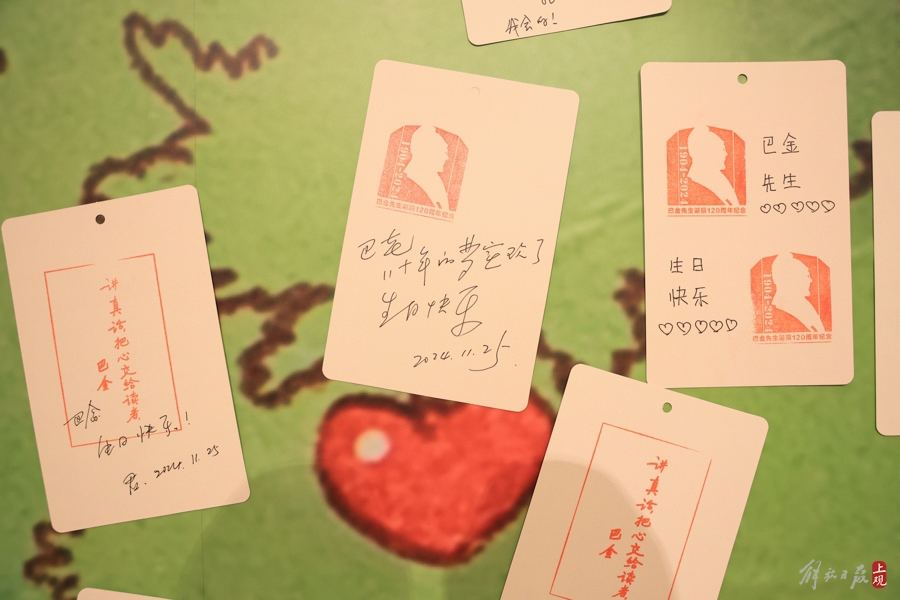 我会的！
1904-2024
巴金先生诞辰120周年纪念
巴老
八十年的梦实现了
生日快乐
2024.11.25
1904-2024
巴金先生诞辰120周年纪念
巴金
先生
♡♡♡♡♡
生日
快乐
♡♡♡♡♡
1904-2024
巴金先生诞辰120周年纪念
讲真话把心交给读者
巴金
巴金
生日快乐！
2024.11.25
讲真话把心交给读者
巴金
解放日报
上观